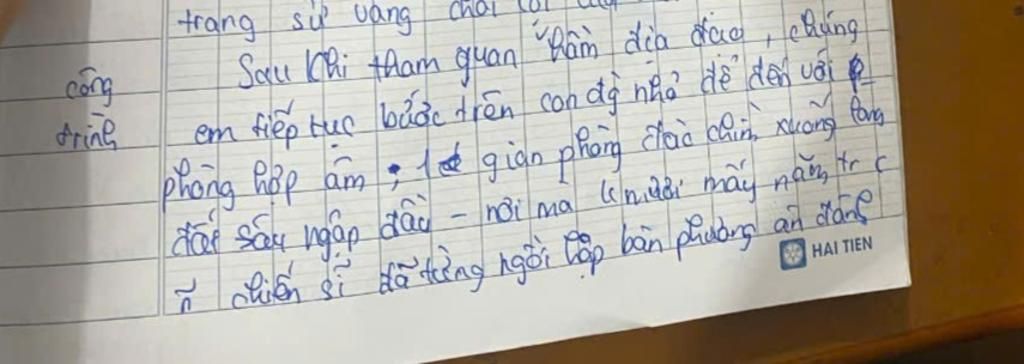 trang sử vàng chói lọi
Sau khi tham quan "hầm địa đạo, chúng
công
em tiếp tục bước trên con đg nhỏ để đến với
trình
phòng họp âm, 1 gian phòng đào chìm xuống lòng
đất sâu ngập đầu - nơi mà mấy năm tr
chiến sĩ đã từng ngồi lập bàn phương án đánh
HAI TIEN